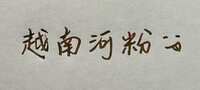 越南河粉